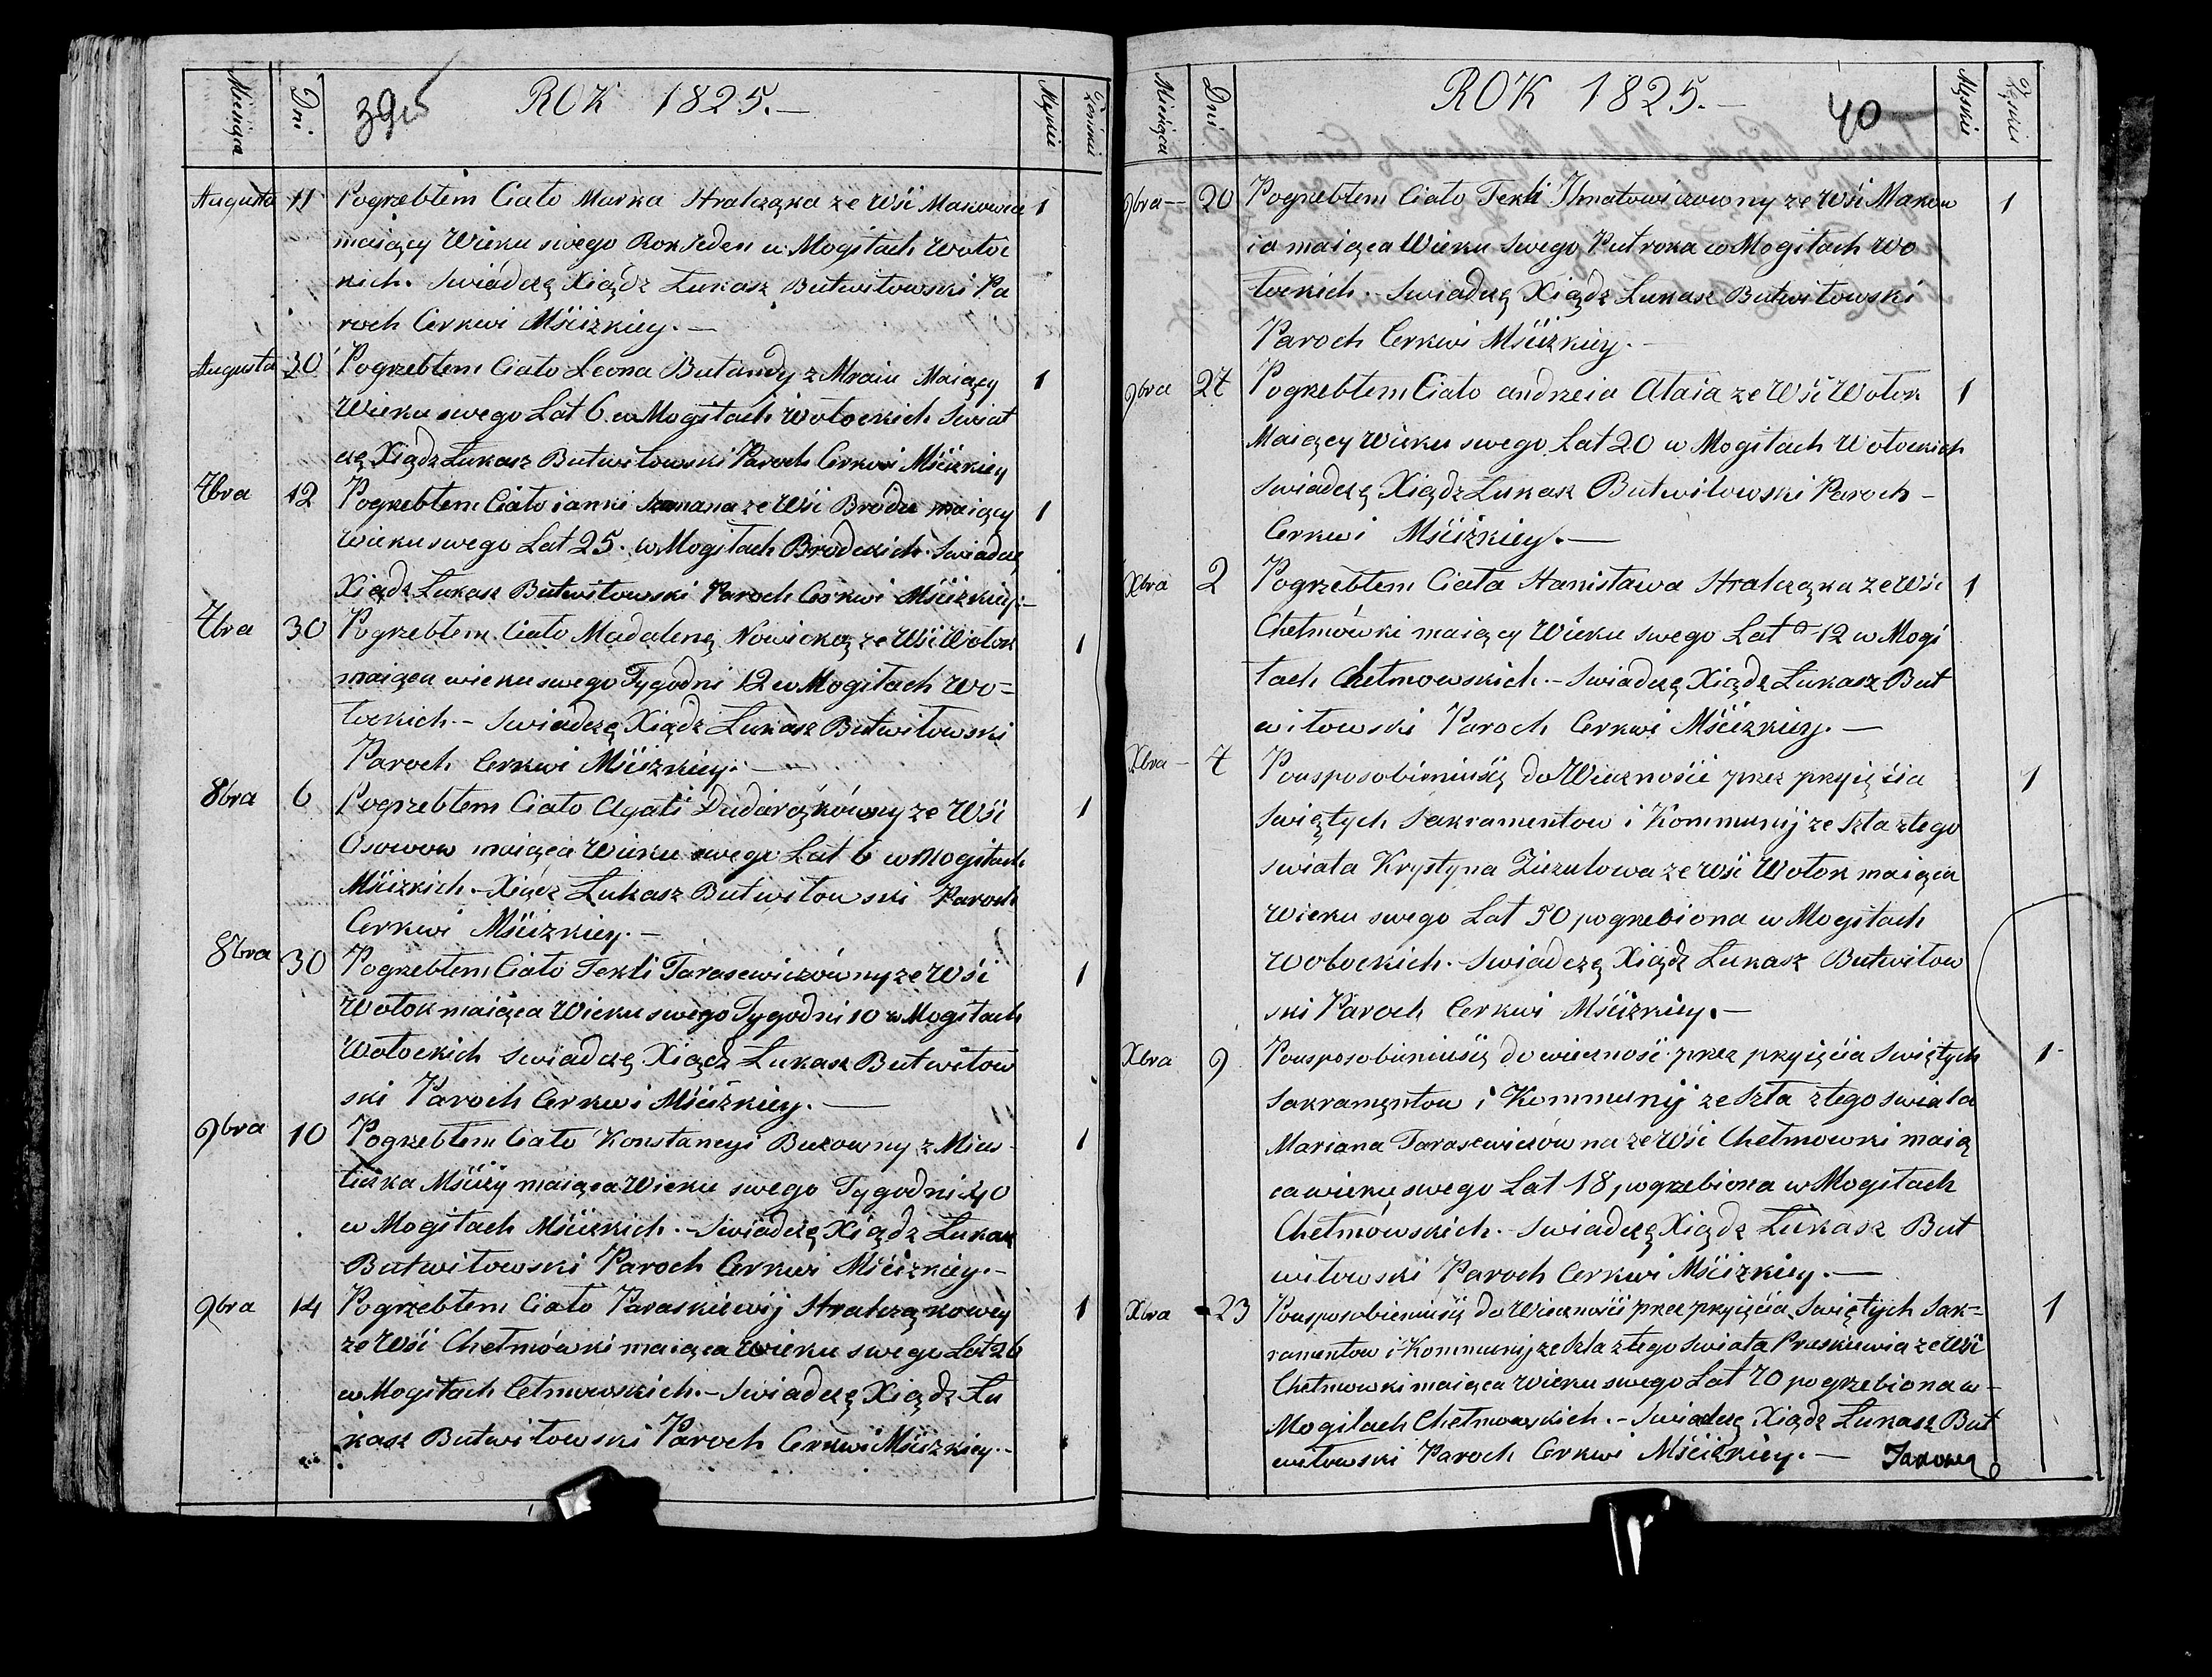 Miesiąca Dni 395 ROK 1825.— Męskie Żeńskie
Augusta 11 Pogrzebłem Ciało Marka Stralcząka ze Wśi Makowia 1
maiący Wieku swego Rok Jeden w Mogiłach Wołoc
kich. Swiadczę Xiądz Łukasz Butwiłowski Pa
roch Cerkwi Mściżkiey.—
Augusta 30 Pogrzebłem Ciało Leona Butandy z Mraiu Maiący 1
Wieku swego Lat 6. w Mogiłach Wołockich Swiad
czę Xiądz Łukasz Butwiłowski Paroch Cerkwi Mściżkiey
7bra 12 Pogrzebłem Ciało ianki Szamana ze Wśi Brodu maiący 1
Wieku swego Lat 25. w Mogiłach Brodzkich. Swiadczę
Xiądz Łukasz Butwiłowski Paroch Cerkwi Mściżkiey.—
7bra 30 Pogrzebłem Ciało Madalenę Nowicką ze Wśi Wołok 1
maiąca wieku swego Tygodni 12 w Mogiłach Wo=
łockich.— Swiadczę Xiądz Łukasz Butwiłowski
Paroch Cerkwi Mściżkiey.—
8bra 6 Pogrzebłem Ciało Agati Dudarążkówny ze Wśi 1
Osowow maiąca Wieku swego Lat 6 w Mogiłach
Mściżkich.— Xiądz Łukasz Butwiłowski Paroch
Cerkwi Mściżkiey.—
8bra 30 Pogrzebłem Ciało Tekli Tarasewiczówny ze Wśi 1
Wołok maiąca Wieku swego Tygodni 10 w Mogiłach
Wołockich Swiadczę Xiądz Łukasz Butwiłow
ski Paroch Cerkwi Mściżkiey.—
9bra 10 Pogrzebłem Ciało Konstancyi Buzowny z Mias- 1
teczka Mściży maiąca Wieku swego Tygodni 40
w Mogiłach Mściżkich.— Swiadczę Xiądz Łukasz
Butwiłowski Paroch Cerkwi Mściżkiey.—
9bra 14 Pogrzebłem Ciało Paraskiewij Stralcząkowey 1
ze Wśi Chełmówki maiąca Wieku swego Lat 26
w Mogiłach Cełmowskich.— Swiadczę Xiądz Łu
kasz Butwiłowski Paroch Cerkwi Mściżkiey.—
Miesiąca Dni ROK 1825.— 40 Męskie Żęskie
9bra— 20 Pogrzebłem Ciało Tekli Ihnatowiczowny ze Wśi Makow 1
ia maiąca Wieku swego Puł roka w Mogiłach Wo
łockich.— Swiadczę Xiądz Łukasz Butwiłowski
Paroch Cerkwi Mściżkiey.—
9bra 27 Pogrzebłem Ciało andrzeia Ataia ze Wśi Wołok 1
Maiący Wieku swego Lat 20 w Mogiłach Wołockich
Swiadczę Xiądz Łukasz Butwiłowski Paroch—
Cerkwi Mściżkiey.—
Xbra 2 Pogrzebłem Ciała Stanisława Stralcząka ze Wśi 1
Chełmówki maiący Wieku swego Lat 12 w Mogi
łach Chełmowskich.— Swiadczę Xiądz Łukasz But
wiłowski Paroch Cerkwi Mściżkiey.—
Xbra— 7 Pousposobieniusię do Wieczności przez przyięcia 1
Swiętych Sakramentow i Kommunij ze szła ztego
swiata Krystyna Ziezulowa ze Wśi Wołok maiąca
Wieku swego Lat 50 pogrzebiona w Mogiłach
Wołockich. Swiadczę Xiądz Łukasz Butwiłow
ski Paroch Cerkwi Mściżkiey.—
Xbra 9 Pousposobieniusię do wieczności przez przyięcia Swiętych 1
Sakramentow i Kommunij ze szła ztego swiata
Mariana Tarasewiczówna ze Wśi Chełmowki maią
ca wieku swego Lat 18, pogrzebiona w Mogiłach
Chełmówskich. Swiadczę Xiądz Łukasz But
wiłowski Paroch Cerkwi Mściżkiey.—
Xbra 23 Pousposobieniusię do Wieczności przez przyięcia Swiętych Sak= 1
ramentow i Kommunij ze szła ztego swiata Praskiewia ze Wśi
Chełmowki maiąca wieku swego Lat 70 pogrzebiona w—
Mogiłach Chełmowskich.— Swiadczę Xiądz Łukasz But
wiłowski Paroch Cerkwi Mściżkiey.—